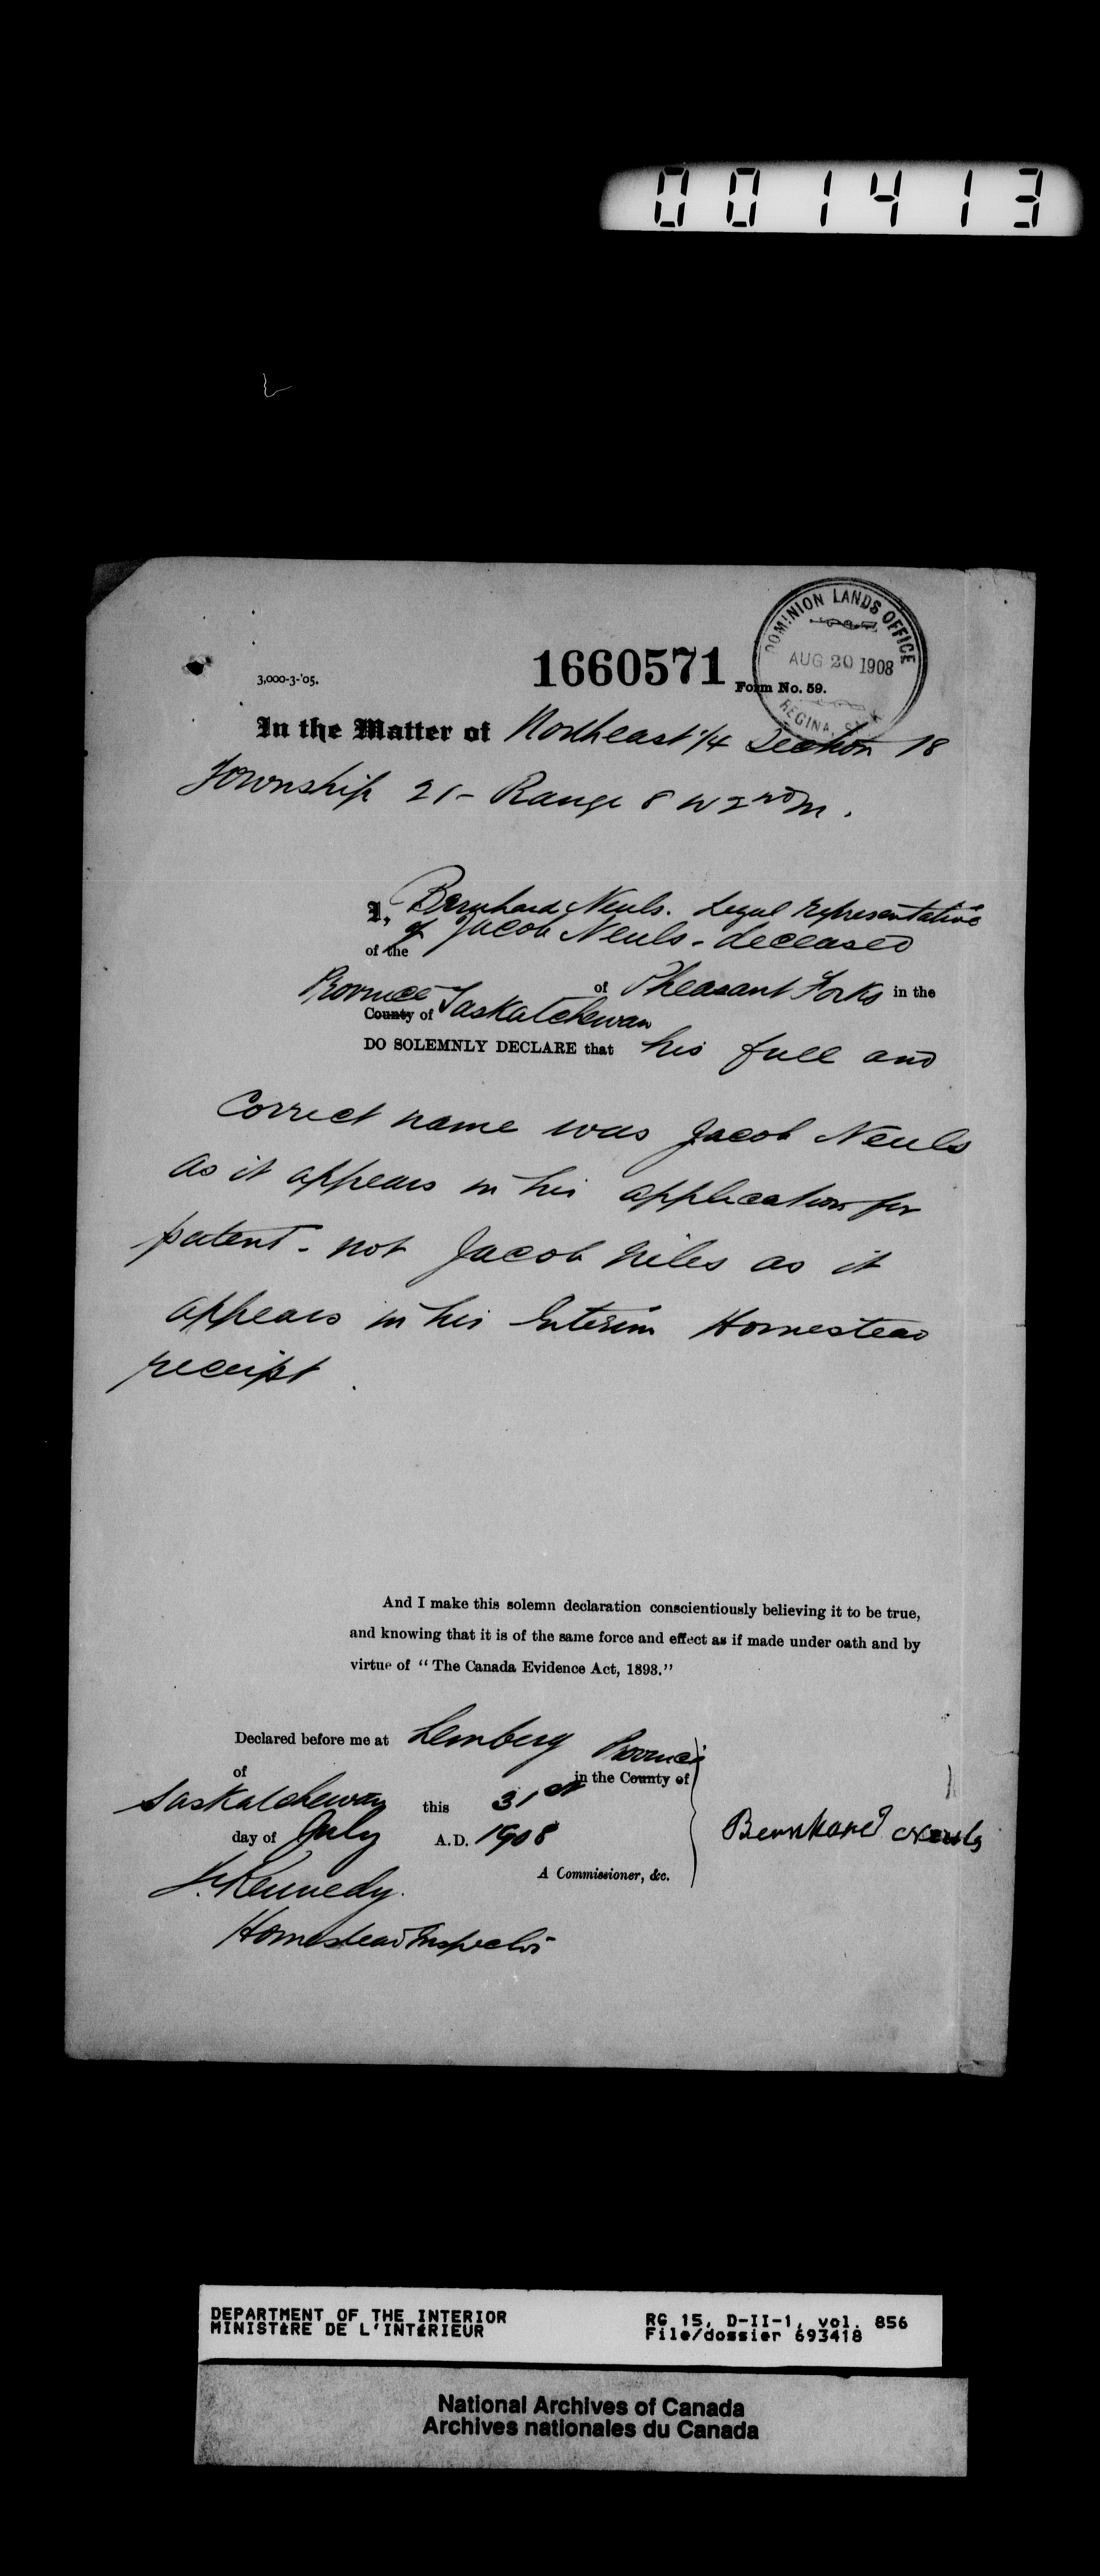 001413
DOMINION LANDS OFFICE
AUG 20 1908
REGINA
3,000-3-'05.
1660571
Form No. 59.
In the Matter of Northeast 1/4 Section 18
Township 21 - Range 8 W 2nd M.
I, Bernhard Neuls. Legal Representative
of Jacob Neuls - deceased
of the
of Pheasant Forks in the
Province
County of Saskatchewan
DO SOLEMNLY DECLARE that his full and
Correct name was Jacob Neuls
as it appears in his application for
patent - not Jacob Niles as it
appears in his Interim Homestead
receipt.
And I make this solemn declaration conscientiously believing it to be true,
and knowing that it is of the same force and effect as if made under oath and by
virtue of "The Canada Evidence Act, 1893."
Declared before me at Lemberg Province
of in the County of
Saskatchewan this 31st
day of July A.D. 1908
Bernhard Neuls
A Commissioner, &c.
Kennedy.
Homestead Inspector
DEPARTMENT OF THE INTERIOR
MINISTÈRE DE L'INTÉRIEUR
RG 15, D-II-1, vol. 856
File/dossier 693418
National Archives of Canada
Archives nationales du Canada